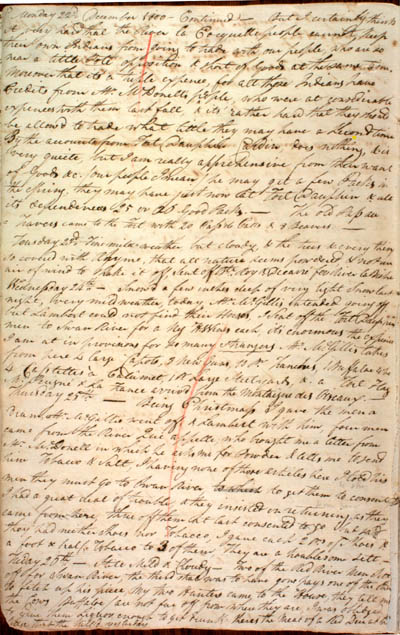 Monday 22d December 1800 — Continued — But I certainly think
it very hard that the River la Coquille people cannot keep
their own Indians from going to trade with our people, who are so
near a little Fort of
Moreover that its a triple expence, for all those Indians have
Credits from Mr McDonells people, who were at considerable
expences with them last fall & its rather hard that they should
be allowed to trade what little they may have a second time
By the accounts from Fort Dauphin does nothing, & is
very quiet but I am really apprehensive from their want
of Goods &c. Our people I mean he may get a few Packs in
the Spring, they may have just now at Fort Dauphin & all
its dependences 25 or 26 Good Packs. — The old
came to the Fort with 20 & 3 Beavers —
Tuesday 23d Fine mild weather but cloudy, & the trees & every thing
so covered with Rhyme, that all nature seems powdered & not an
air of wind to shake it off Sent off Mr Roy &
Wednesday 24th — Snowed a few inches deep of very light Snow last
night, very mild weather today, Mr McGillis intended going off
but Lambert could not find their Horses I sent off the Fort Dauphin
men to Swan River for a Keg each, its enormous the expence
I am at in provisions for so many Strangers. Mr McGillis takes
from here 4 large Capots, 2 New Guns,
4 Capotes a Calumet, & a Fort Flag
Thursday 25th — Being Christmass I gave the men a
Dram Mr McGillis went off & Lambert with him four men
came from the River Qui apelle, who brought me a letter from
Mr McDonell in which he asks me for Powder & tells me to send
him Tobacco & Salt I having none of those articles here I told his
men they must go to Swan River to get them to consent
I had a great deal of trouble, & they insisted on returning, as they
came from here three of them at last consented to go but said
they had neither shoes nor Tobacco, I gave each 2 prs of shoes &
a foot & half Tobacco to 3 of them, They are a troublesome set —
Friday 26th — still Mild & Cloudy — Two of the Red River Men set
off for Swan River, the third that was to have gone pays one of the others
to fetch up his piece My two Hunters came to the House they tell me
the Cows Buffaloe are not far off from where they are, I was obliged
to give them Liquor enough to get drunk